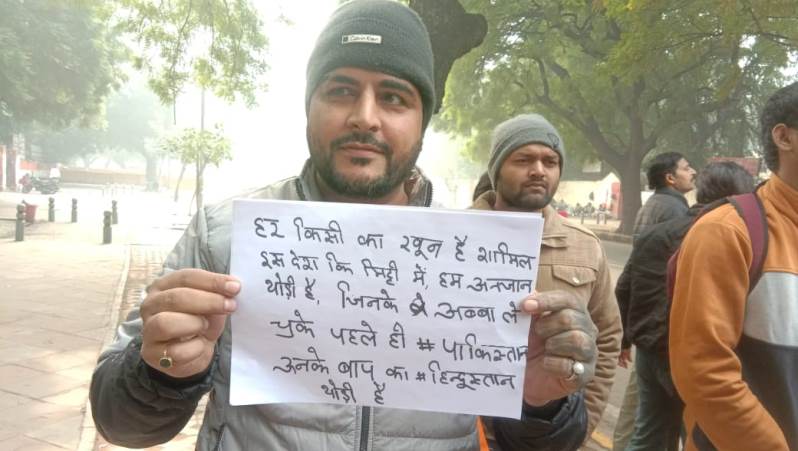 Calvin Klein
हर किसी का खून है शामिल
इस देश कि मिट्टी में, हम अनजान
थोड़ी है, जिनके अब्बा ले
चुके पहले ही #पाकिस्तान
उनके बाप का #हिन्दुस्तान
थोड़ी है